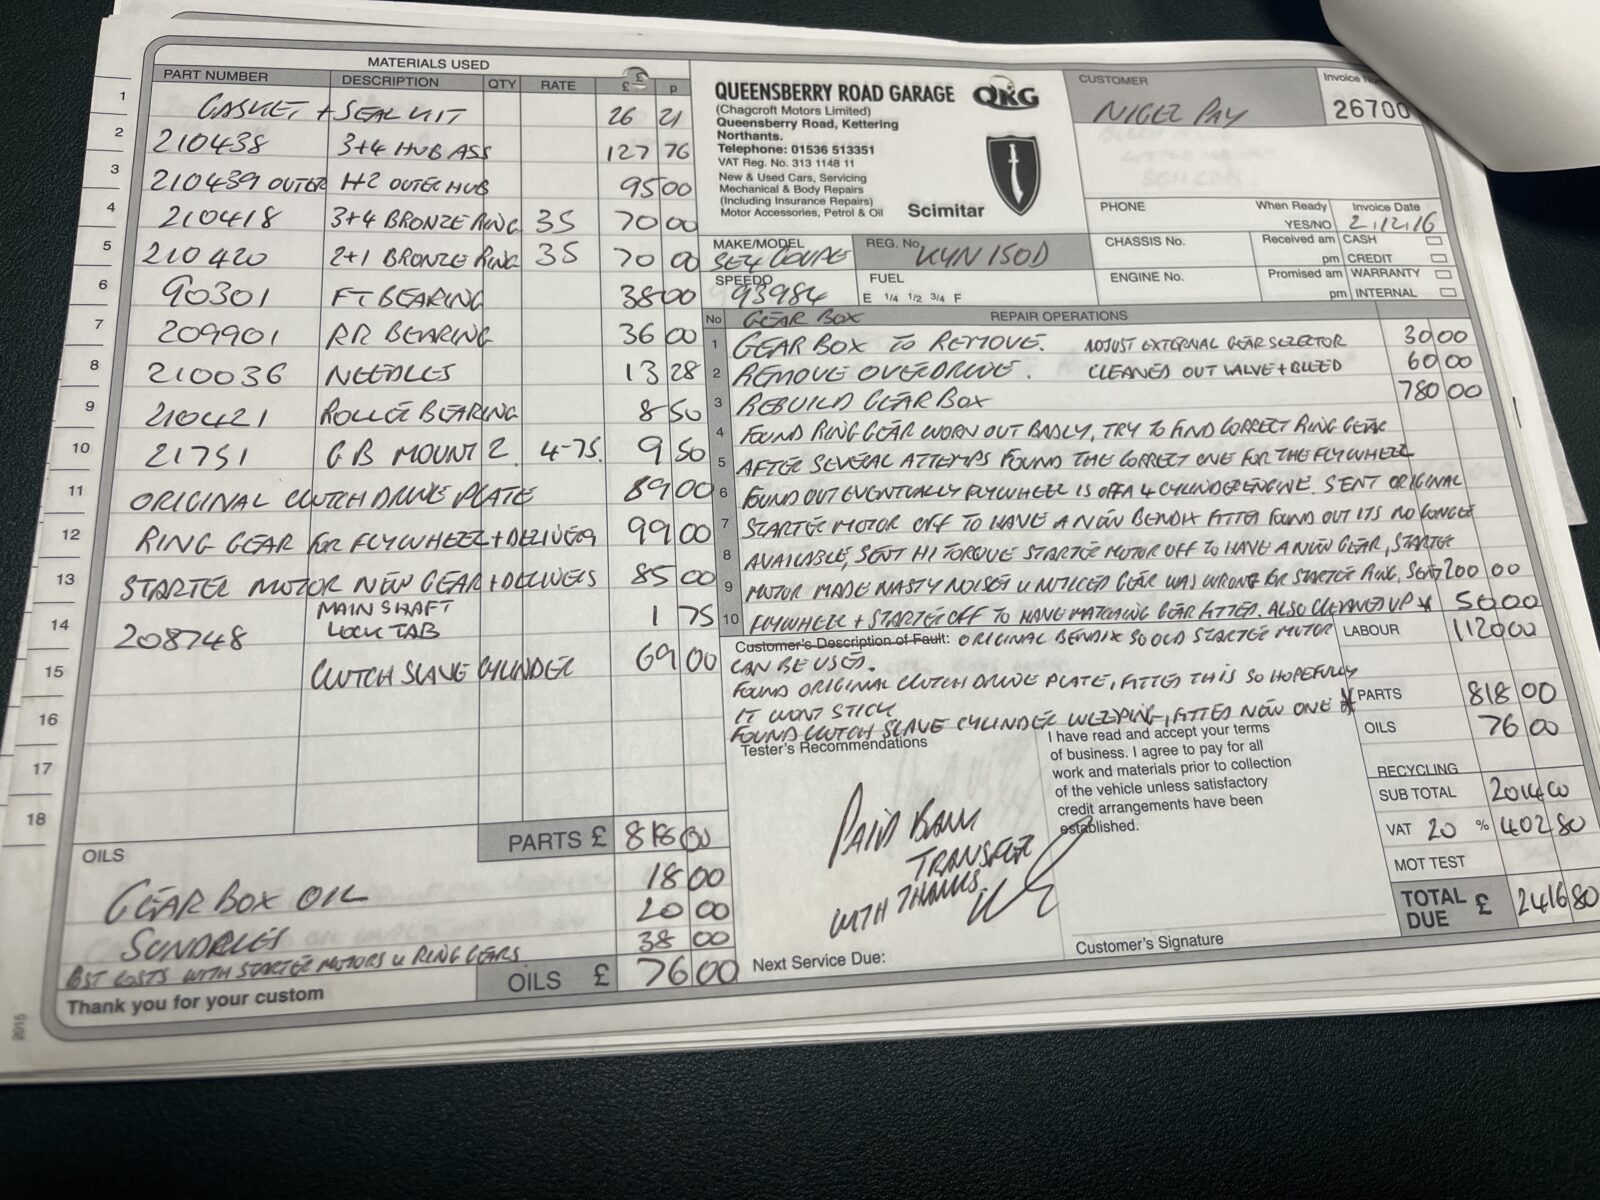 MATERIALS USED
PART NUMBER DESCRIPTION QTY RATE £ p
1 GASKET + SEAL KIT 26 21
2 210438 3+4 HUB ASS 127 76
3 210439 OUTER 1+2 OUTER HUB 95 00
4 210418 3+4 BRONZE RING 35 70 00
5 210420 2+1 BRONZE RING 35 70 00
6 90301 FT BEARING 38 00
7 209901 RR BEARING 36 00
8 210036 NEEDLES 13 28
9 210421 ROLLER BEARING 8 50
10 21751 GB MOUNT 2 4-75 9 50
11 ORIGINAL CLUTCH DRIVE PLATE 89 00
12 RING GEAR FOR FLYWHEEL + DELIVERY 99 00
13 STARTER MOTOR NEW GEAR + DELIVERS 85 00
14 208748 MAINSHAFT LOCK TAB 1 75
15 CLUTCH SLAVE CYLINDER 69 00
16
17
18
PARTS £ 818 00
OILS
GEAR BOX OIL 18 00
SUNDRIES 20 00
POST COSTS WITH STARTER MOTORS & RING GEARS 38 00
OILS £ 76 00
Thank you for your custom
2015
QUEENSBERRY ROAD GARAGE QRG
(Chagcroft Motors Limited)
Queensberry Road, Kettering
Northants.
Telephone: 01536 513351
VAT Reg. No. 313 1148 11
New & Used Cars, Servicing
Mechanical & Body Repairs
(Including Insurance Repairs)
Motor Accessories, Petrol & Oil
Scimitar
CUSTOMER
NIGEL PAY
Invoice
26700
PHONE When Ready Invoice Date
YES/NO 2.12.16
MAKE/MODEL SE4 COUPE
REG. No. KYN 150D
CHASSIS No. Received am CASH
pm CREDIT
SPEEDO 93984
FUEL
E 1/4 1/2 3/4 F
ENGINE No. Promised am WARRANTY
pm INTERNAL
No GEAR BOX REPAIR OPERATIONS
1 GEAR BOX TO REMOVE. ADJUST EXTERNAL GEAR SELECTOR 30 00
2 REMOVE OVERDRIVE. CLEANED OUT VALVE + BLEED 60 00
3 REBUILD GEAR BOX 780 00
4 FOUND RING GEAR WORN OUT BADLY, TRY TO FIND CORRECT RING GEAR
5 AFTER SEVERAL ATTEMPS FOUND THE CORRECT ONE FOR THE FLYWHEEL
6 FOUND OUT EVENTUALLY FLYWHEEL IS OFF A 4 CYLINDER ENGINE. SENT ORIGINAL
7 STARTER MOTOR OFF TO HAVE A NEW BENDIX FITTED FOUND OUT ITS NO LONGER
8 AVAILABLE, SENT HI TORQUE STARTER MOTOR OFF TO HAVE A NEW GEAR, STARTER
9 MOTOR MADE NASTY NOISES & NOTICED GEAR WAS WRONG FOR STARTER RING, SENT 200 00
10 FLYWHEEL + STARTER OFF TO HAVE MATCHING GEAR FITTED. ALSO CLEANED UP * 50 00
Customer's Description of Fault: ORIGINAL BENDIX SO OLD STARTER MOTOR
CAN BE USED.
FOUND ORIGINAL CLUTCH DRIVE PLATE, FITTED THIS SO HOPEFULLY
IT WONT STICK
FOUND CLUTCH SLAVE CYLINDER WEEPING, FITTED NEW ONE *
LABOUR 1120 00
PARTS 818 00
OILS 76 00
RECYCLING
SUB TOTAL 2014 00
VAT 20 % 402 80
MOT TEST
TOTAL DUE £ 2416 80
Tester's Recommendations
I have read and accept your terms
of business. I agree to pay for all
work and materials prior to collection
of the vehicle unless satisfactory
credit arrangements have been
established.
PAID BANK
TRANSFER
WITH THANKS
Next Service Due:
Customer's Signature